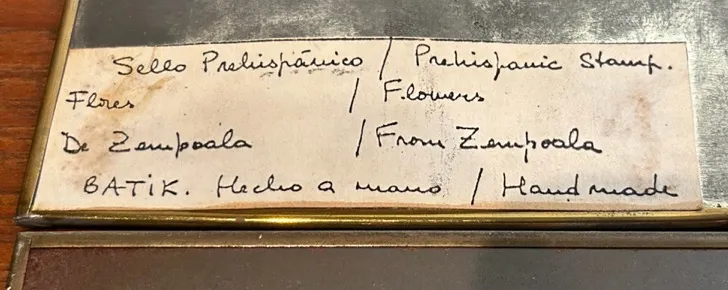 Sello Prehispánico / Prehispanic Stamp.
Flores / Flowers
De Zempoala / From Zempoala
BATiK. Hecho a mano / Hand made